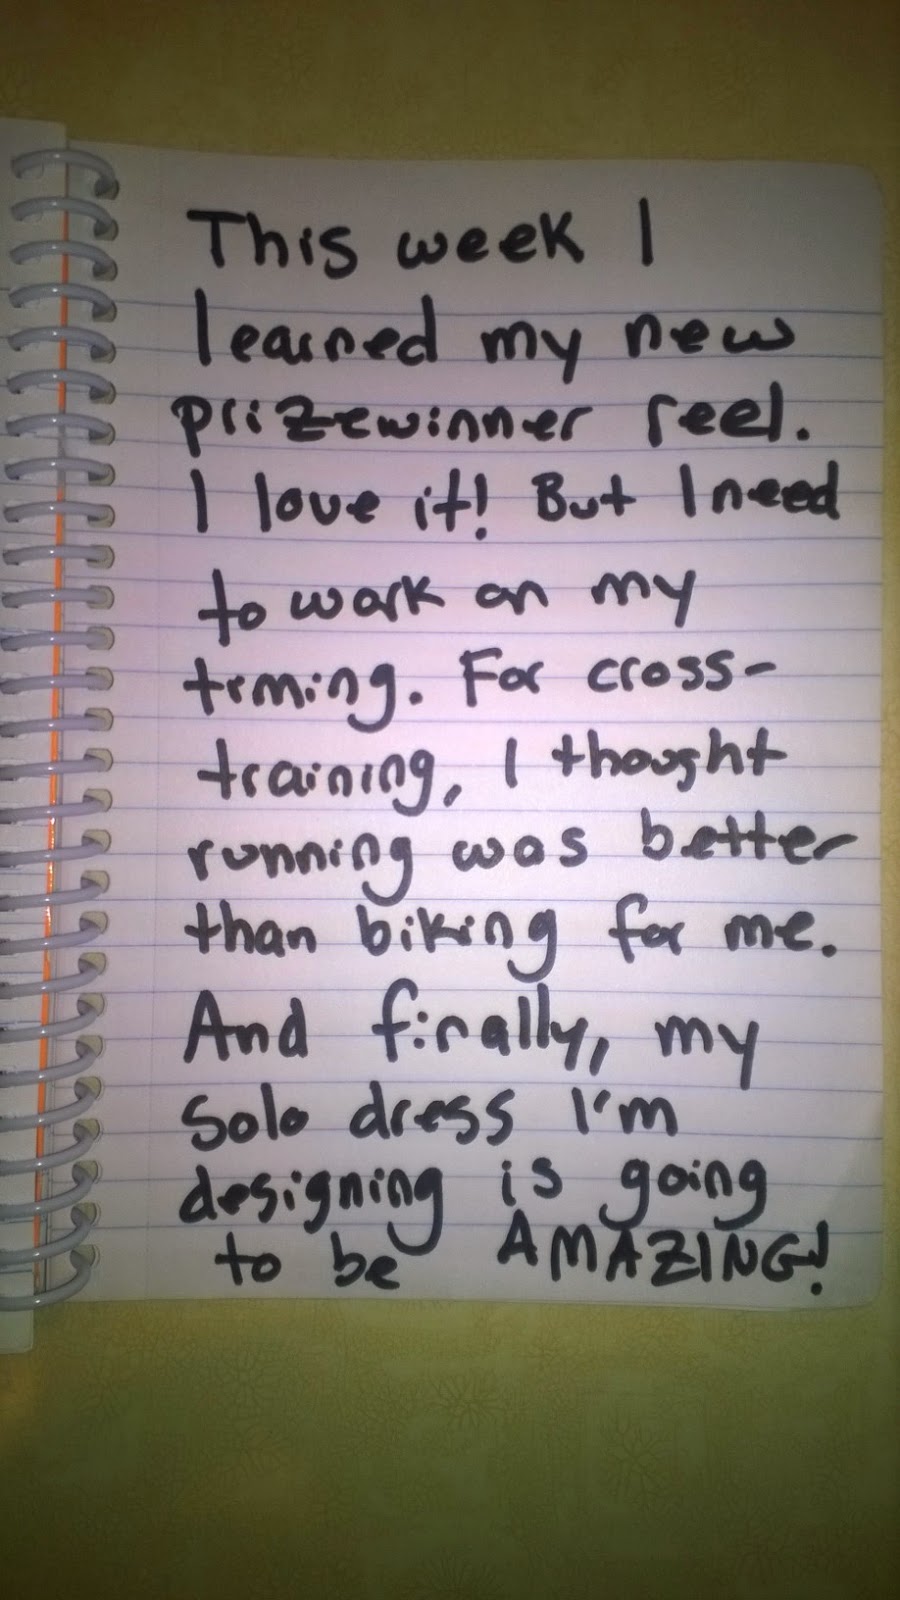 This week I
learned my new
prizewinner reel.
I love it! But I need
to work on my
timing. For cross-
training, I thought
running was better
than biking for me.
And finally, my
Solo dress I'm
designing is going
to be AMAZING!